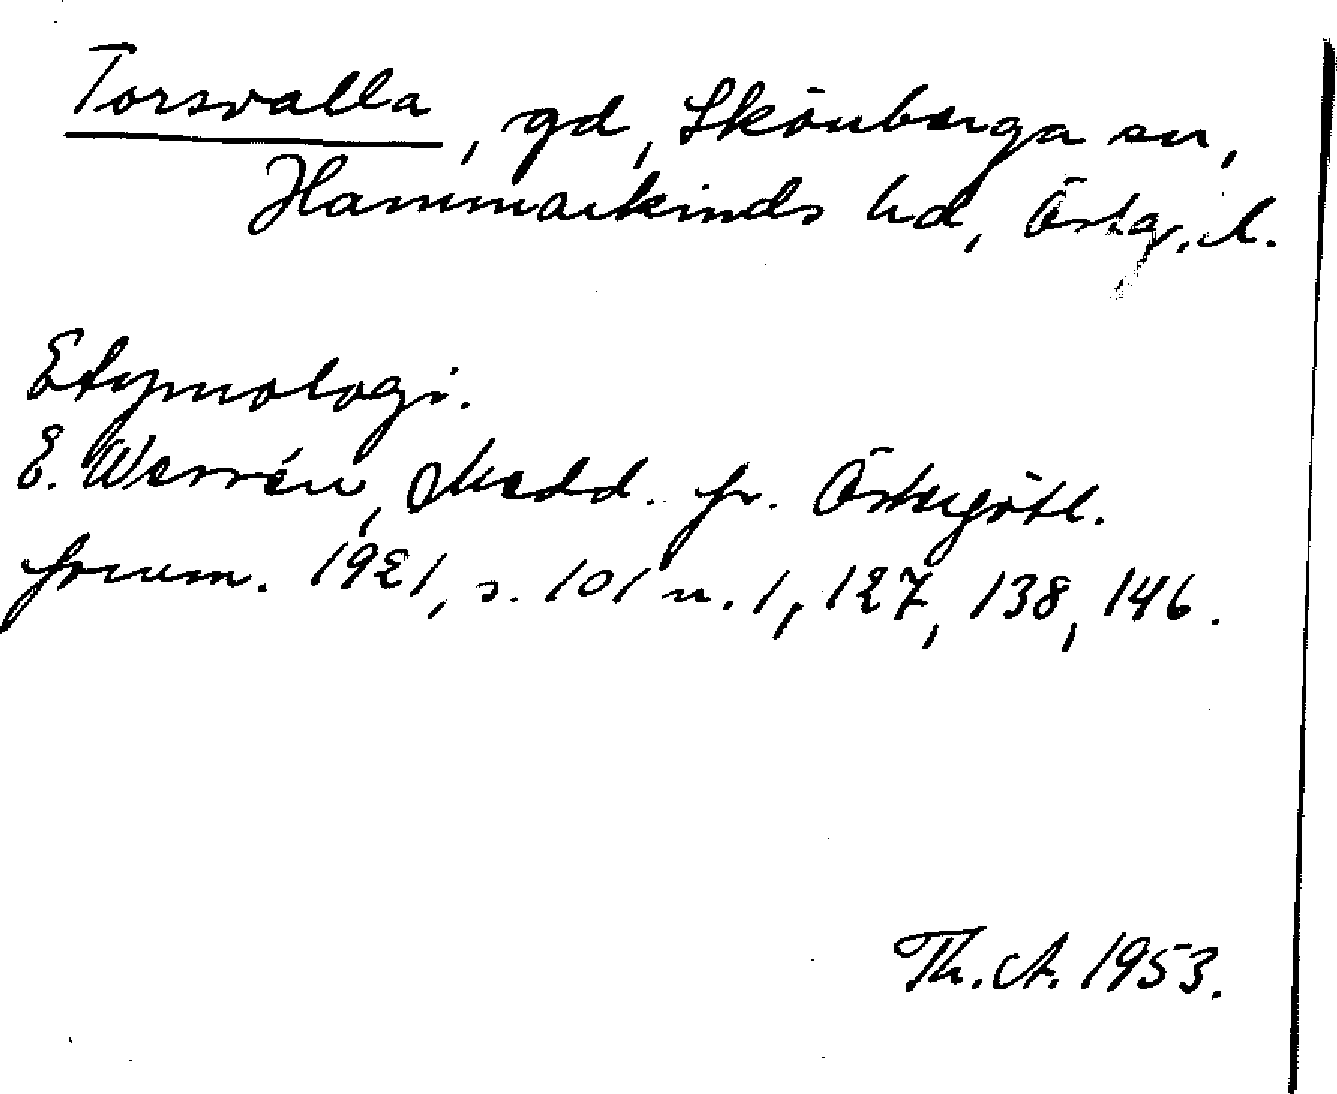 Torsvalla, gd, Skönberga sn,
Hammarkinds hd, Östg. l.
Etymologi.
E. Werrén, Medd. fr. Östergötl.
fornm. 1921, s. 101 n. 1, 127, 138, 146.
Th. A. 1953.